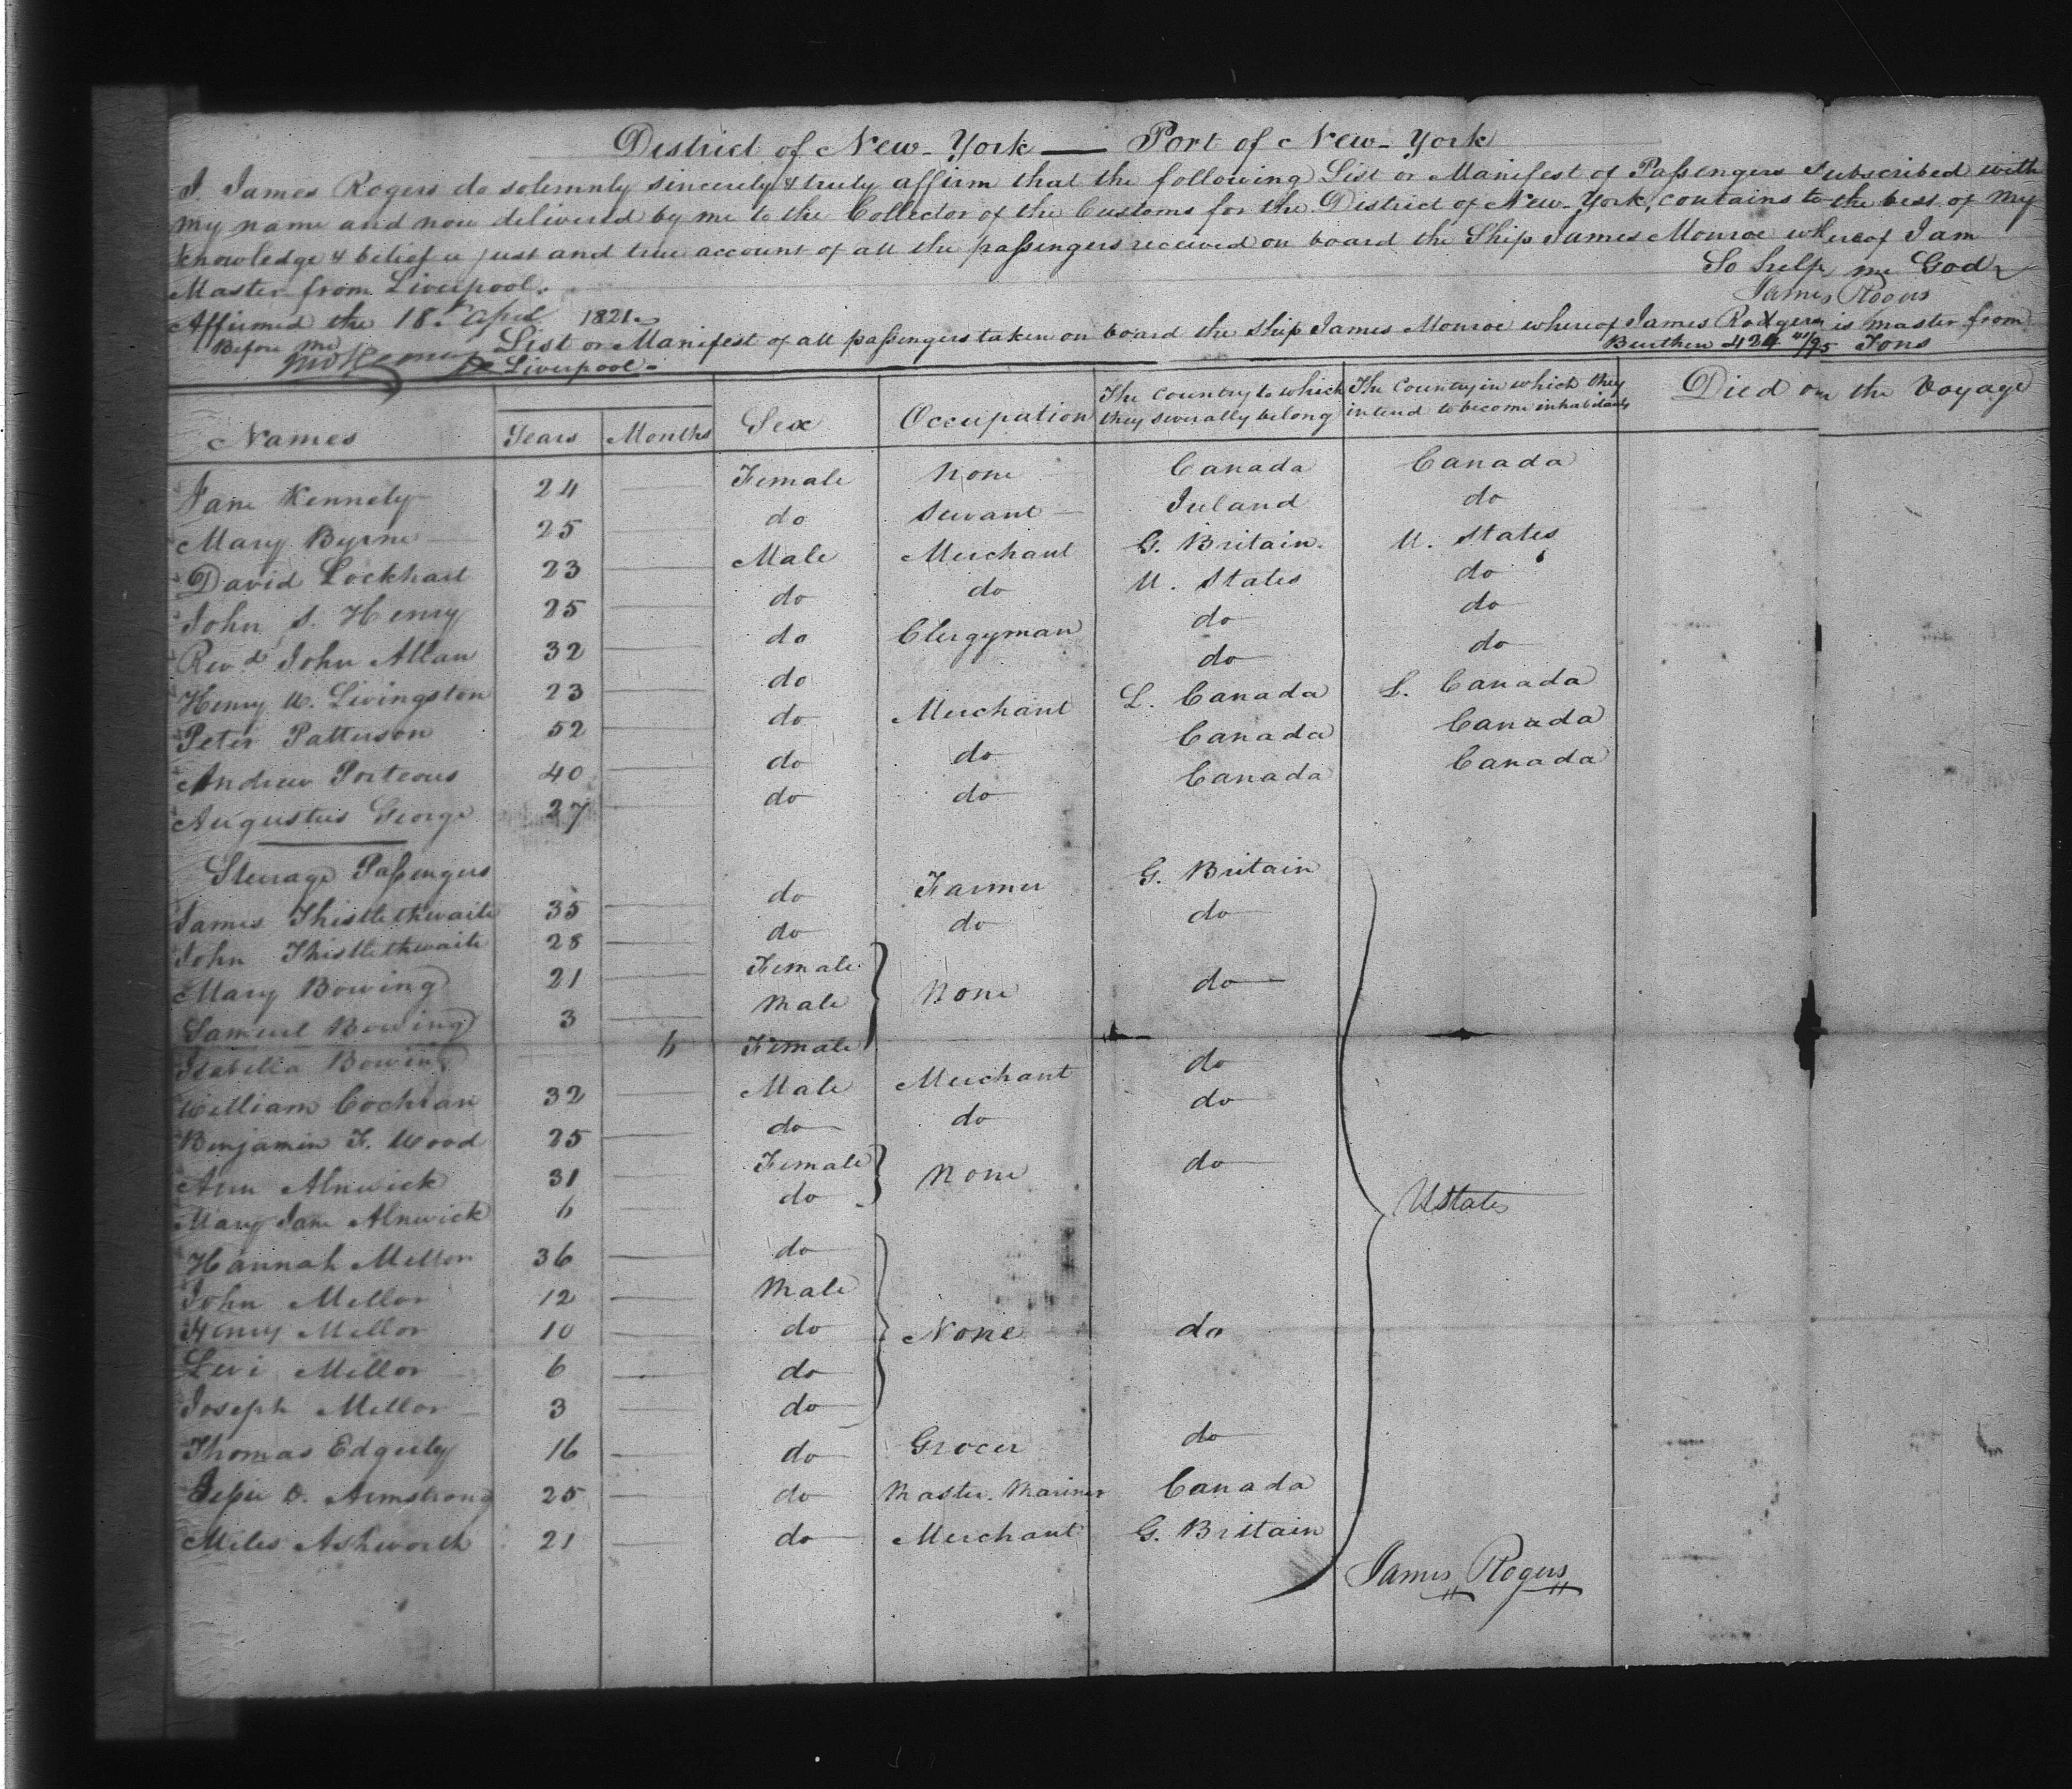 District of New-York — Port of New-York
I. James Rogers do solemnly sincerely & truly affirm that the following List or Manifest of Passengers Subscribed with
my name and now delivered by me to the Collector of the Customs for the District of New-York, contains to the best of my
knowledge & belief a just and true account of all the passengers received on board the Ship James Monroe whereof I am
Master from Liverpool. So help me God
Affirmed the 18th April 1821 James Rogers
Before me
List or Manifest of all passengers taken on board the Ship James Monroe whereof James Rodgers is master from
Liverpool. Burthen 424 41/95 Tons
Names Years Months Sex Occupation The Country to which they severally belong The Country in which they intend to become inhabitants Died on the Voyage
Jane Kennely 24 — Female None Canada Canada
Mary Byrne 25 — do Servant Ireland do
David Lockhart 23 — Male Merchant G. Britain. U. States
John S. Henry 25 — do do U. States do
Revd John Allan 32 — do Clergyman do do
Henry W. Livingston 23 — do do do
Peter Patterson 52 — do Merchant L. Canada L. Canada
Andrew Porteous 40 — do do Canada Canada
Augustus George 27 — do do Canada Canada
Steerage Passengers
James Thistlethwaite 35 — do Farmer G. Britain
John Thistlethwaite 28 — do do do
Mary Bowing 21 — Female
Samuel Bowing 3 — Male None do
Isabella Bowing 6 Female
William Cochran 32 — Male Merchant do
Benjamin F. Wood 25 — do do do
Ann Alnwick 31 — Female None do
Mary Jane Alnwick 6 — do UStates
Hannah Mellor 36 — do
John Mellor 12 — Male
Henry Mellor 10 — do None do
Levi Mellor 6 — do
Joseph Mellor 3 — do
Thomas Edgerly 16 — do Grocer do
Jesse D. Armstrong 25 — do Master. Mariner Canada
Miles Ashworth 21 — do Merchant G. Britain
James Rogers